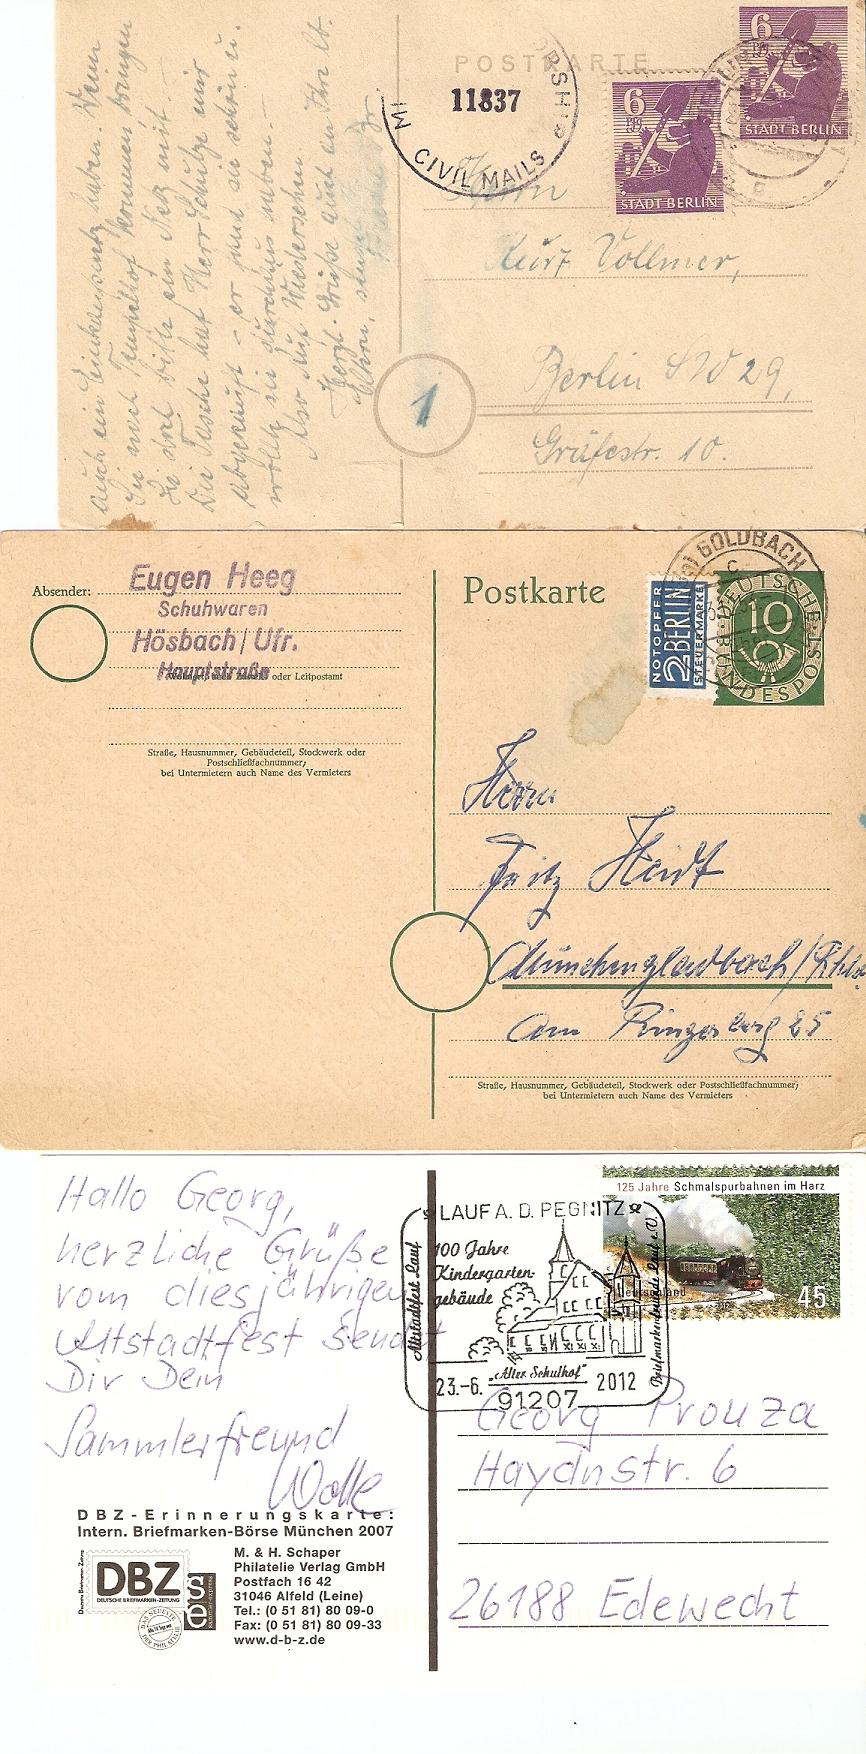 auch ein Einkaufsnetz haben. Wenn
Sie nach Tempelhof kommen bringen
Sie uns bitte ein Netz mit.—
Die Tasche hat Herr Schulze mir
abgekauft – er fand sie schön u.
wollte sie durchaus haben.—
Also auf Wiedersehen
Herzl. Grüße auch an Ihre lb.
Eltern,
POSTKARTE
11837
CIVIL MAILS
6
STADT BERLIN
6
STADT BERLIN
Herrn
Kurt Vollmer,
1
Berlin SW 29,
Gräfestr. 10.
Absender:
Eugen Heeg
Schuhwaren
Hösbach/Ufr.
Hauptstraße
oder Leitpostamt
Straße, Hausnummer, Gebäudeteil, Stockwerk oder
Postschließfachnummer;
bei Untermietern auch Name des Vermieters
Postkarte
GOLDBACH
c
NOTOPFER
2 BERLIN
STEUERMARKE
DEUTSCHE
10
BUNDESPOST
Herrn
Fritz Heidt
Münchengladbach/Rhld
Am Ringerberg 25
Straße, Hausnummer, Gebäudeteil, Stockwerk oder Postschließfachnummer;
bei Untermietern auch Name des Vermieters
Hallo Georg,
herzliche Grüße
vom diesjährigen
Altstadtfest sendet
Dir Dein
Sammlerfreund
DBZ-Erinnerungskarte:
Intern. Briefmarken-Börse München 2007
Deutsche Briefmarken-Zeitung
DBZ
DEUTSCHE BRIEFMARKEN-ZEITUNG
se
M. & H. Schaper
Philatelie Verlag GmbH
Postfach 16 42
31046 Alfeld (Leine)
Tel.: (0 51 81) 80 09-0
Fax: (0 51 81) 80 09-33
www.d-b-z.de
125 Jahre Schmalspurbahnen im Harz
Deutschland
45
LAUF A. D. PEGNITZ
Altstadtfest Lauf
100 Jahre
Kindergarten-
gebäude
Briefmarkenfreunde Lauf e.V.
"Alter Schulhof"
23.-6. 2012
91207
Georg Prouza
Haydnstr. 6
26188 Edewecht